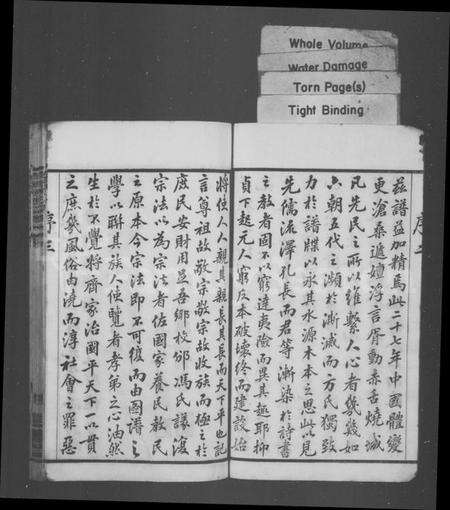 Whole Volume
Water Damage
Torn Page(s)
Tight Binding
序二
茲譜益加精焉此二十七年中國體變
更滄桑遞嬗浮言胥動赤舌燒城
凡先民之所以維繫人心者幾幾如
六朝五代之瀕於漸滅而方氏獨致
力於譜牒以永其水源木本之思此見
先儒流澤孔長而君等漸染於詩書
之教者固不以窮達夷險而異其趣耶抑
貞下起元人窮反本破壞終而建設始
將使人人親其親長其長而天下平也記
言尊祖故敬宗敬宗故收族而極之於
庶民安財用足吾鄉校邠馮氏議復
宗法以為宗法者佐國家養民教民
之原本今宗法即不可復而由國譜之
學以聯其族人使覽者孝弟之心油然
生於不覺將齊家治國平天下一以貫
之庶幾風俗由澆而淳社會之罪惡
序三